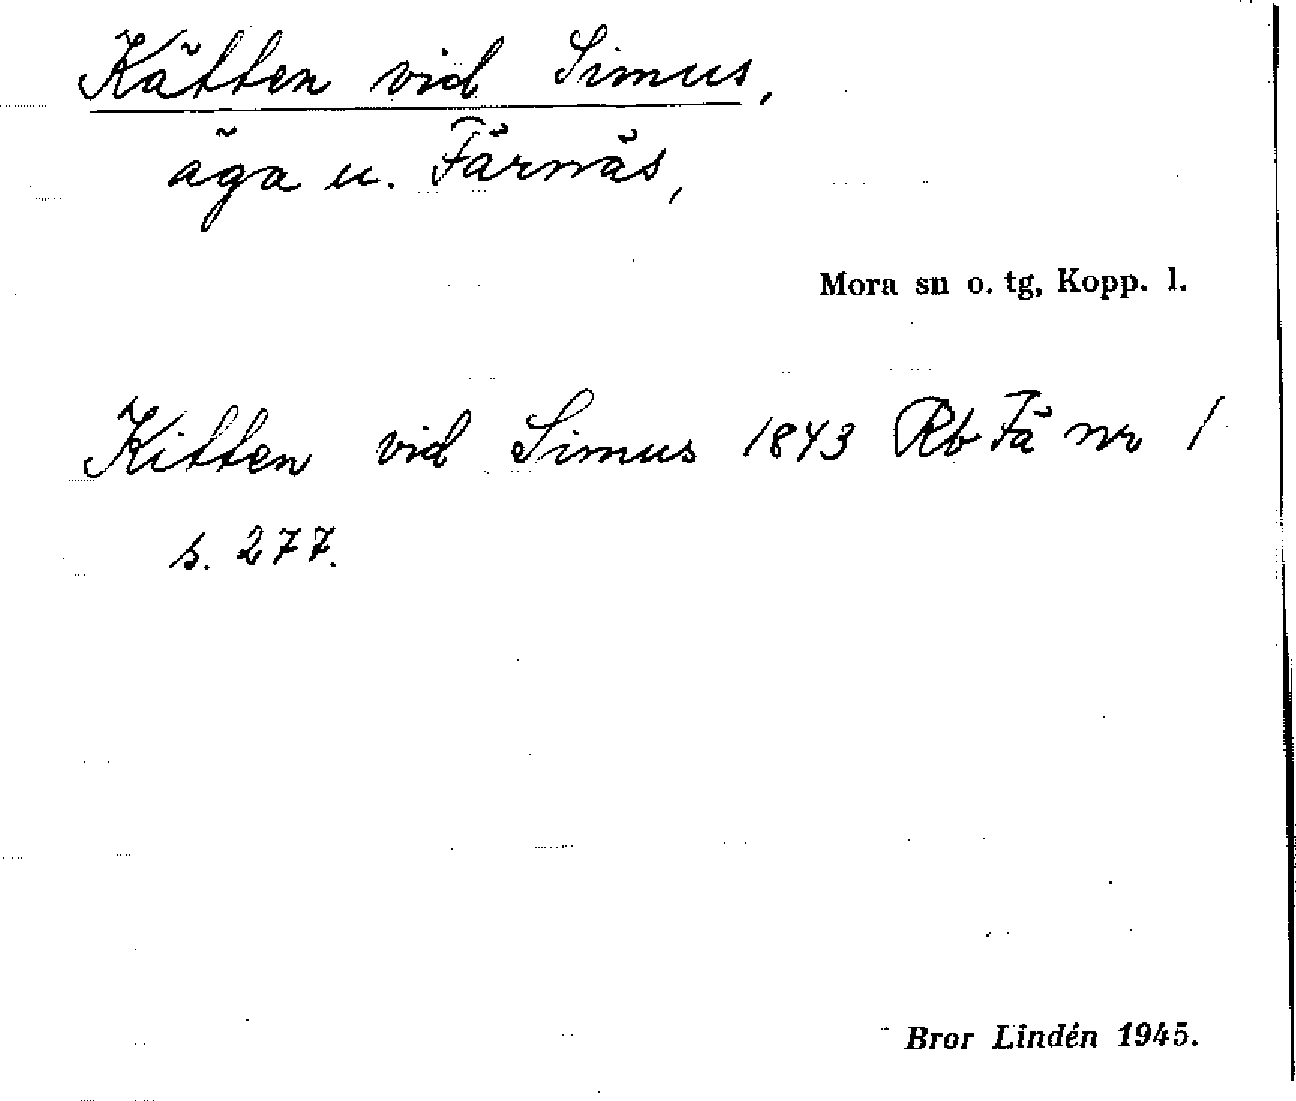 Kätten vid Simus,
äga u. Färnäs,
Mora sn o. tg, Kopp. l.
Kitten vid Simus 1843 Rb Fä nr 1
s. 277.
Bror Lindén 1945.